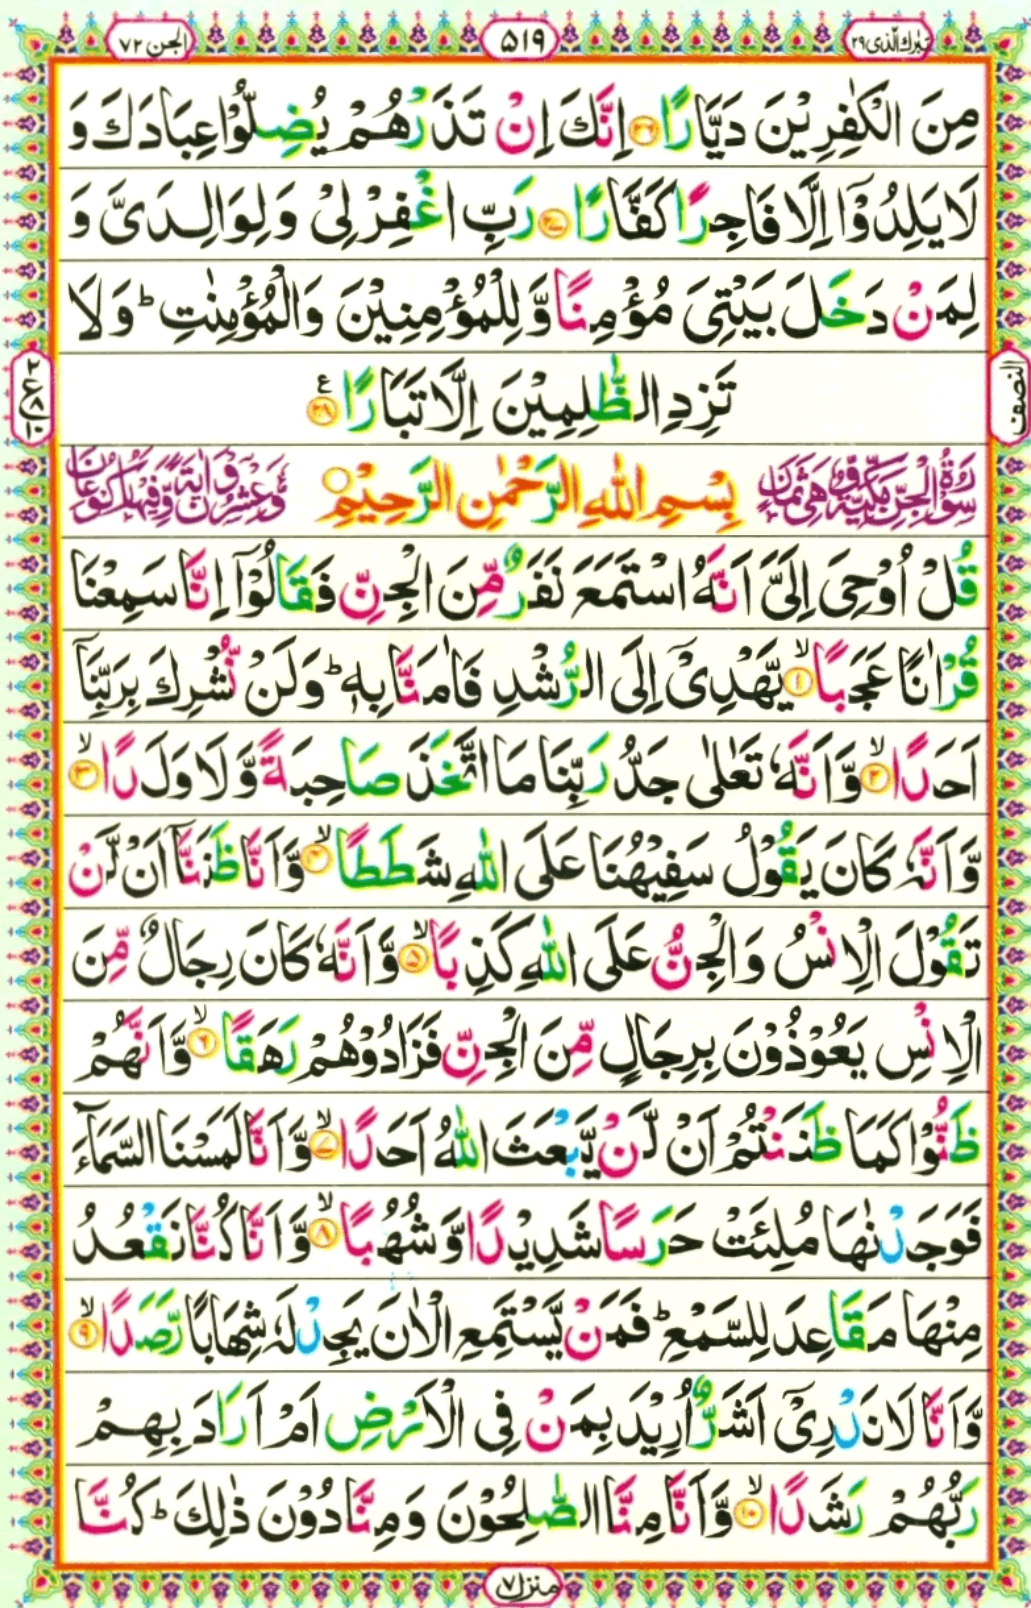 تبٰرك الّذی ۲۹
۵۱۹
الجن ۷۲
مِنَ الْكٰفِرِيْنَ دَيَّارًا ۲۶ اِنَّكَ اِنْ تَذَرْهُمْ يُضِلُّوْا عِبَادَكَ وَ
لَا يَلِدُوْۤا اِلَّا فَاجِرًا كَفَّارًا ۲۷ رَبِّ اغْفِرْ لِیْ وَ لِوَالِدَیَّ وَ
لِمَنْ دَخَلَ بَيْتِیَ مُؤْمِنًا وَّ لِلْمُؤْمِنِيْنَ وَ الْمُؤْمِنٰتِ ؕ وَ لَا
تَزِدِ الظّٰلِمِيْنَ اِلَّا تَبَارًا ۲۸ ع
النصف
۲ ع ۸ ۱۰
سُوْرَةُ الْجِنِّ مَكِّيَّةٌ وَّهِیَ ثَمَانٌ بِسْمِ اللّٰهِ الرَّحْمٰنِ الرَّحِيْمِ وَّعِشْرُوْنَ اٰيَةً وَّفِيْهَا رُكُوْعَانِ
قُلْ اُوْحِیَ اِلَیَّ اَنَّهُ اسْتَمَعَ نَفَرٌ مِّنَ الْجِنِّ فَقَالُوْۤا اِنَّا سَمِعْنَا
قُرْاٰنًا عَجَبًا ۙ۱ يَّهْدِیْۤ اِلَی الرُّشْدِ فَاٰمَنَّا بِهٖ ؕ وَ لَنْ نُّشْرِكَ بِرَبِّنَاۤ
اَحَدًا ۙ۲ وَّ اَنَّهٗ تَعٰلٰی جَدُّ رَبِّنَا مَا اتَّخَذَ صَاحِبَةً وَّ لَا وَلَدًا ۙ۳
وَّ اَنَّهٗ كَانَ يَقُوْلُ سَفِيْهُنَا عَلَی اللّٰهِ شَطَطًا ۙ۴ وَّ اَنَّا ظَنَنَّاۤ اَنْ لَّنْ
تَقُوْلَ الْاِنْسُ وَ الْجِنُّ عَلَی اللّٰهِ كَذِبًا ۙ۵ وَّ اَنَّهٗ كَانَ رِجَالٌ مِّنَ
الْاِنْسِ يَعُوْذُوْنَ بِرِجَالٍ مِّنَ الْجِنِّ فَزَادُوْهُمْ رَهَقًا ۙ۶ وَّ اَنَّهُمْ
ظَنُّوْا كَمَا ظَنَنْتُمْ اَنْ لَّنْ يَّبْعَثَ اللّٰهُ اَحَدًا ۙ۷ وَّ اَنَّا لَمَسْنَا السَّمَآءَ
فَوَجَدْنٰهَا مُلِئَتْ حَرَسًا شَدِيْدًا وَّ شُهُبًا ۙ۸ وَّ اَنَّا كُنَّا نَقْعُدُ
مِنْهَا مَقَاعِدَ لِلسَّمْعِ ؕ فَمَنْ يَّسْتَمِعِ الْاٰنَ يَجِدْ لَهٗ شِهَابًا رَّصَدًا ۙ۹
وَّ اَنَّا لَا نَدْرِیْۤ اَشَرٌّ اُرِيْدَ بِمَنْ فِی الْاَرْضِ اَمْ اَرَادَ بِهِمْ
رَبُّهُمْ رَشَدًا ۙ۱۰ وَّ اَنَّا مِنَّا الصّٰلِحُوْنَ وَ مِنَّا دُوْنَ ذٰلِكَ ؕ كُنَّا
منزل ۷